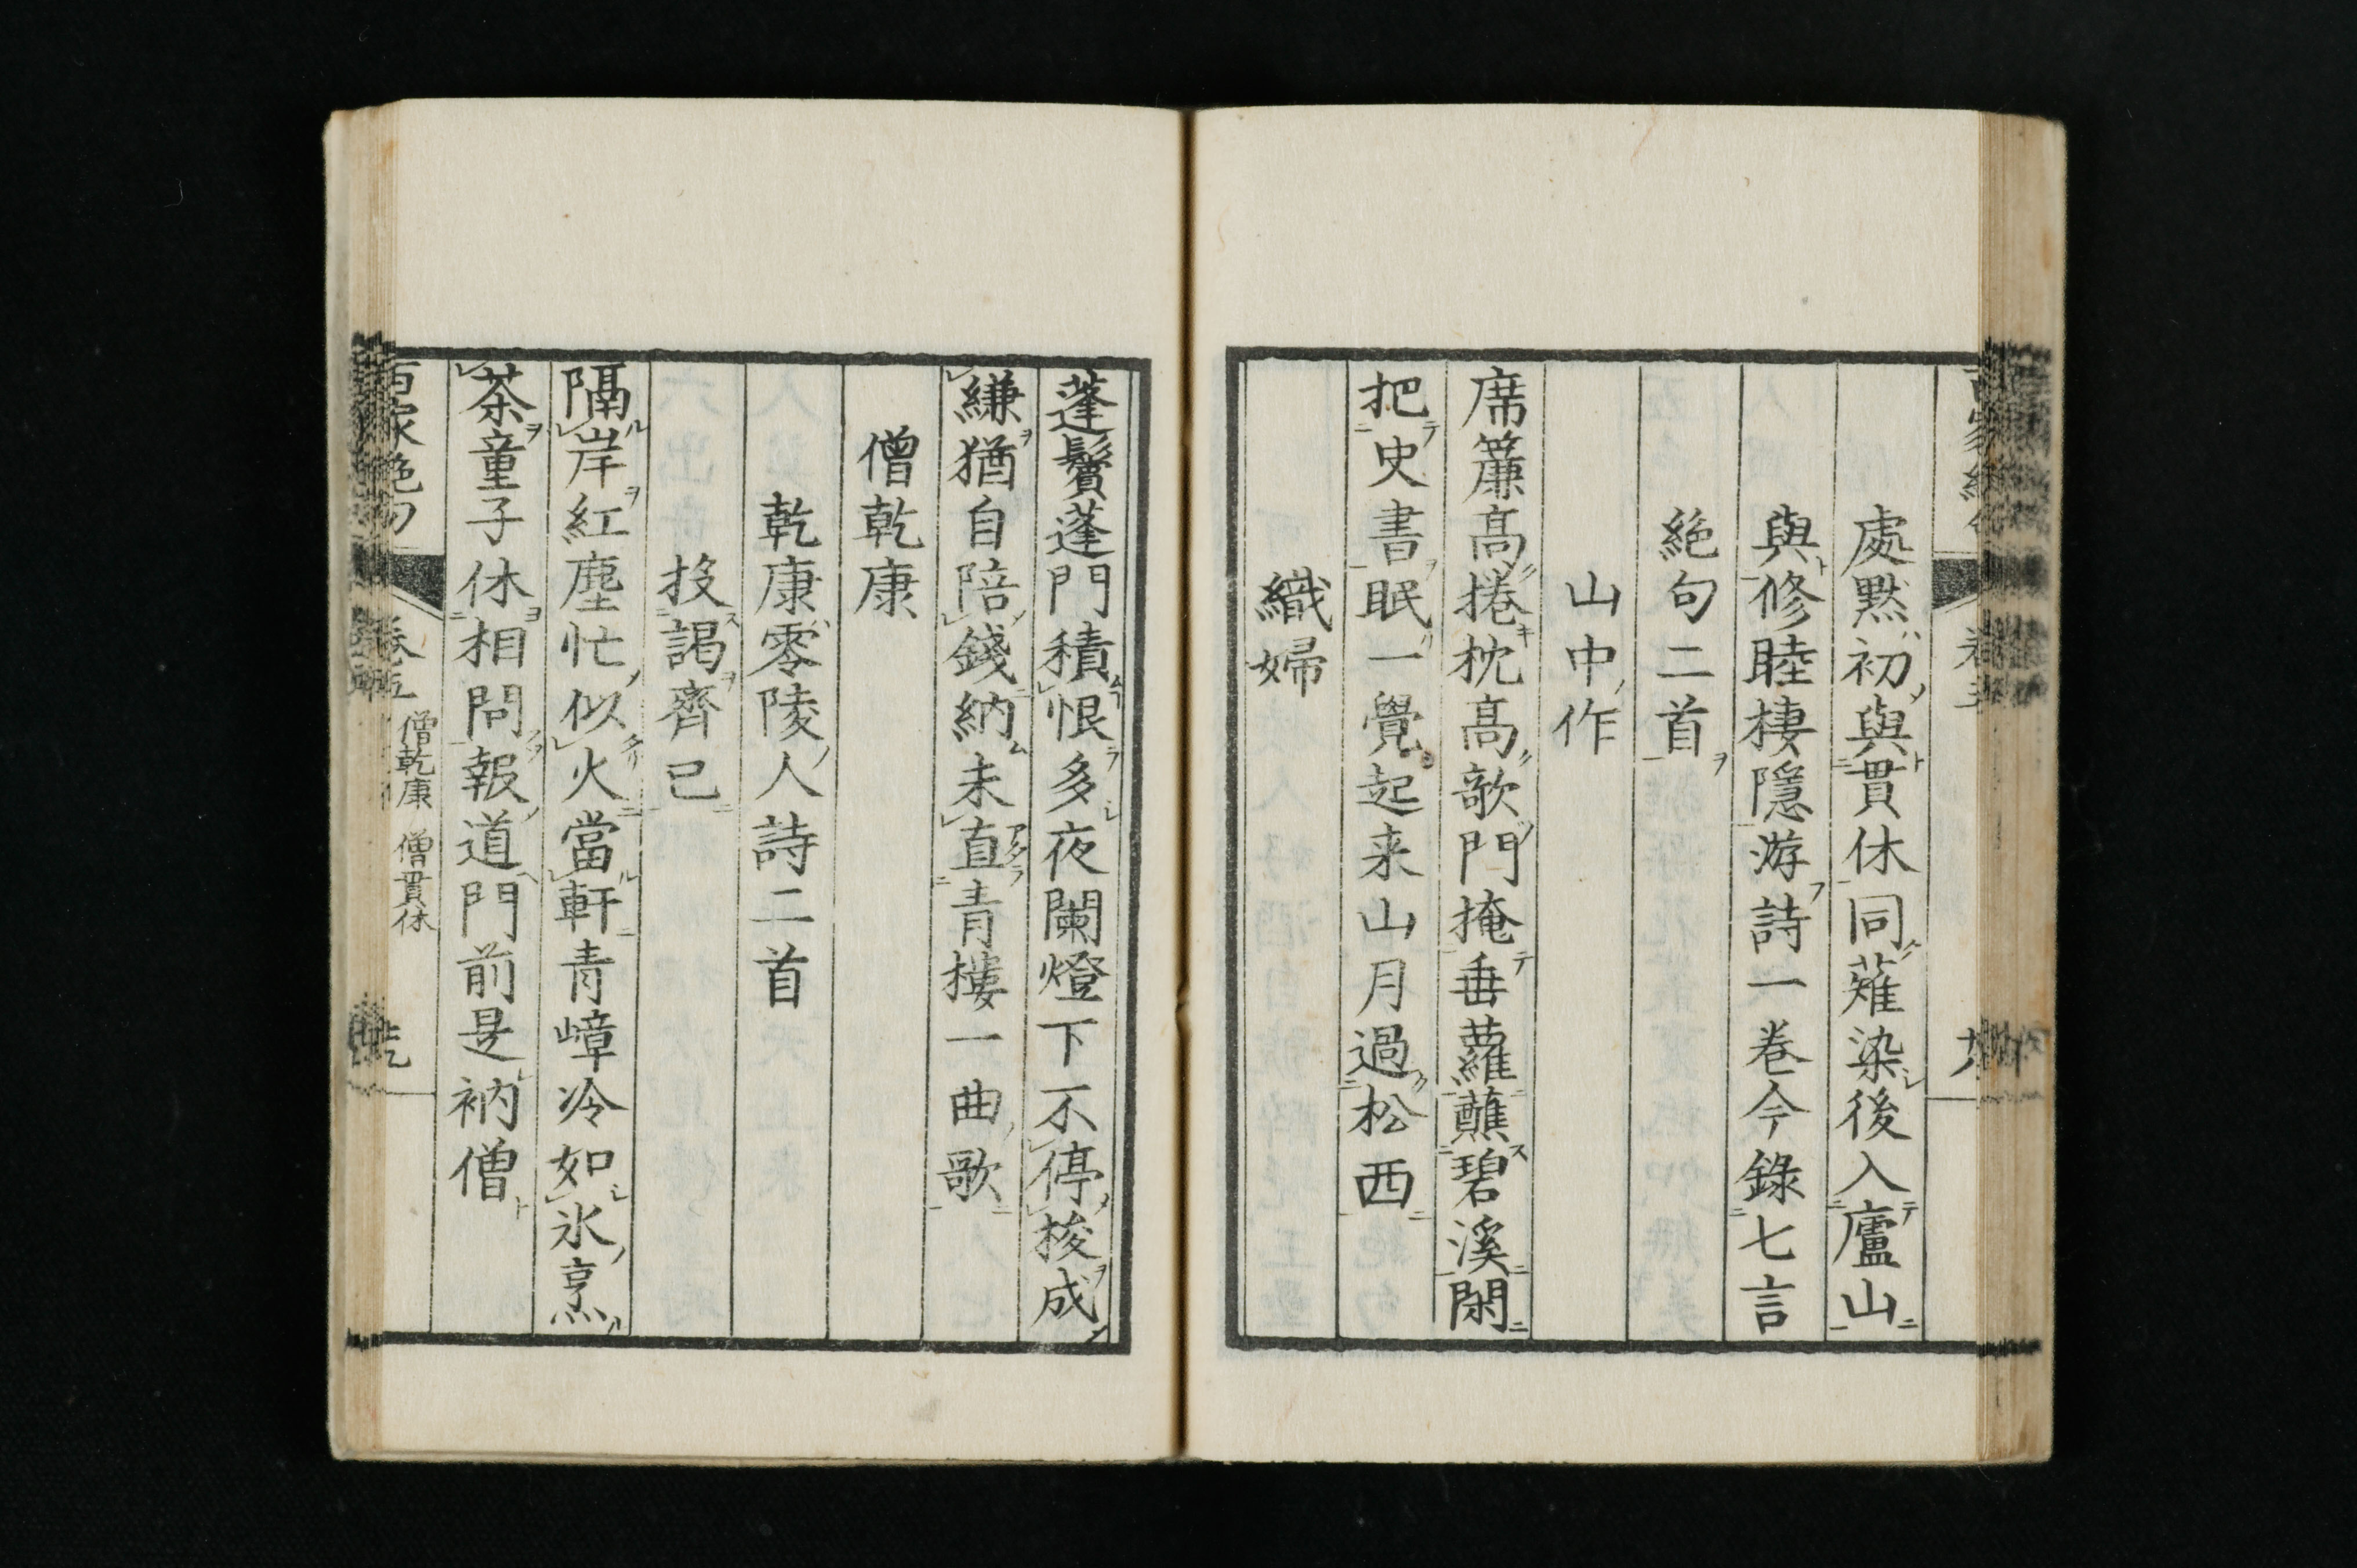 處黙初與貫休同薙染後入廬山
與修睦棲隱游詩一卷今錄七言
絶句二首
山中作
席簾髙捲枕髙欹門掩垂蘿蘸碧溪閑
把史書眠一覺起来山月過松西
織婦
蓬鬢蓬門積恨多夜闌燈下不停梭成
縑猶自陪錢納未直青摟一曲歌
僧乾康
乾康零陵人詩二首
投謁齊己
隔岸紅塵忙似火當軒青嶂冷如氷烹
茶童子休相問報道門前是衲僧
百家絶句
卷五
僧乾康 僧貫休